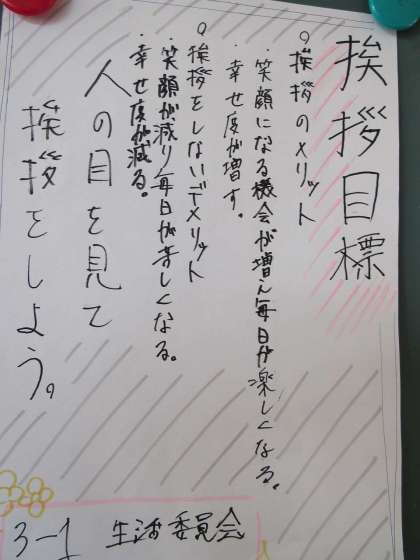 挨拶目標
○挨拶のメリット
・笑顔になる機会が増え毎日が楽しくなる。
・幸せ度が増す。
○挨拶をしないデメリット
・笑顔が減り毎日が辛くなる。
・幸せ度が減る。
人の目を見て
挨拶をしよう。
3-1 生活委員会